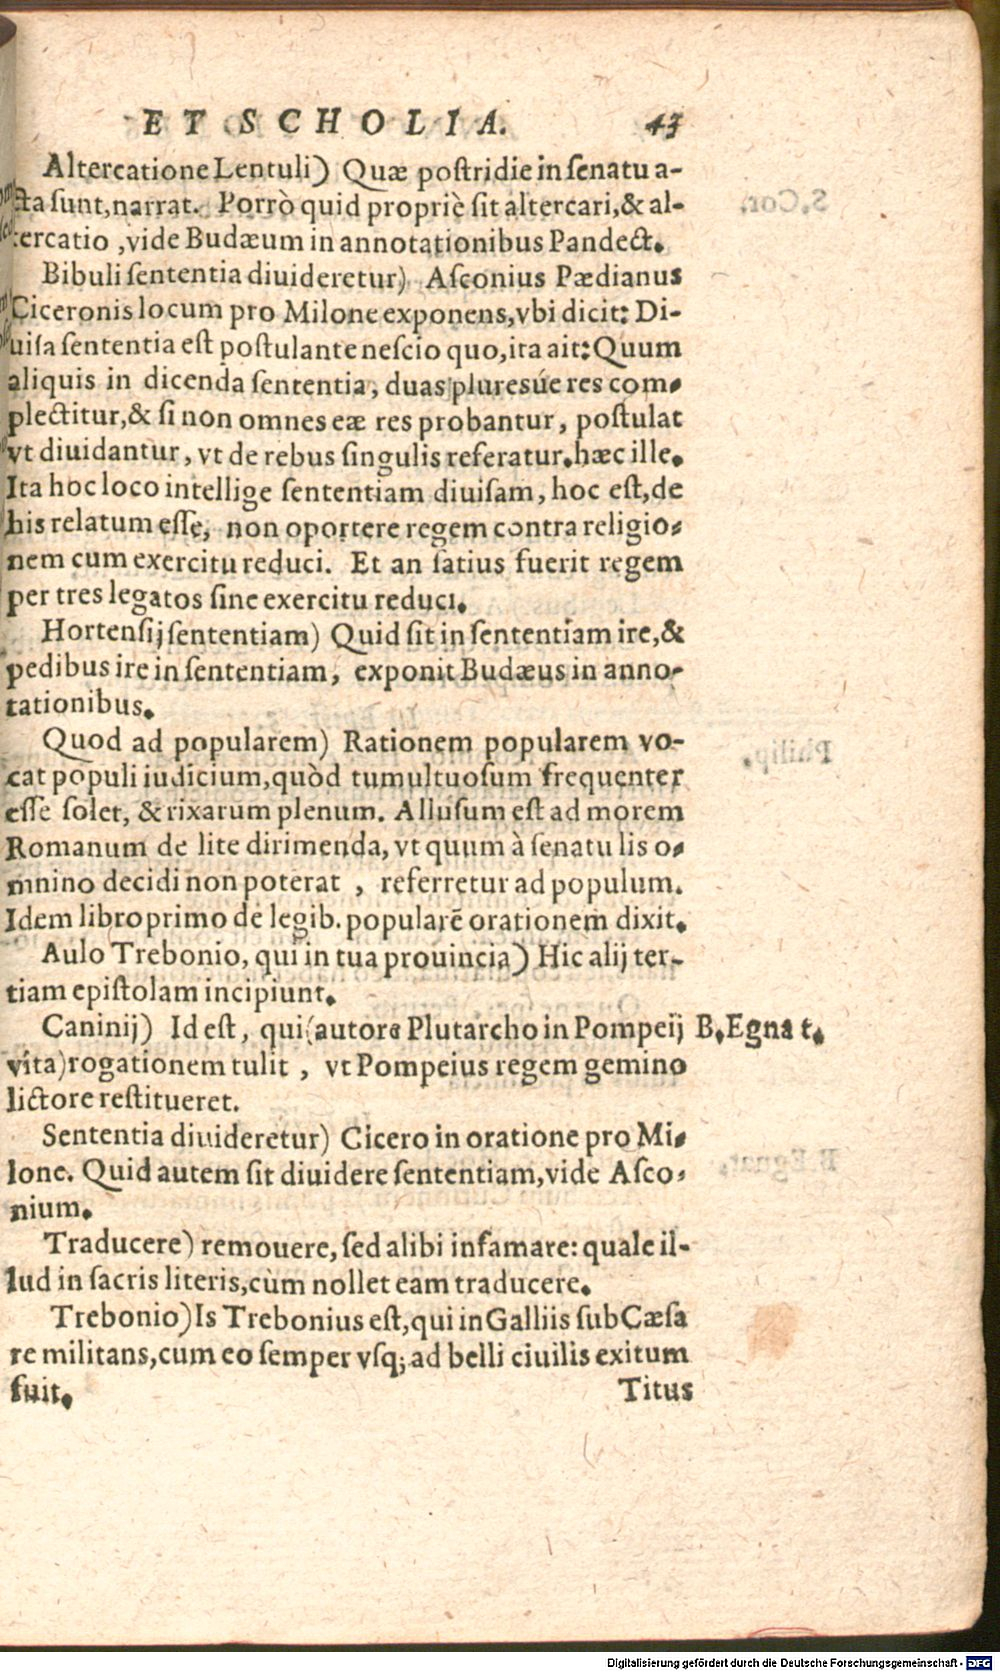 ET SCHOLIA. 43
Altercatione Lentuli) Quæ postridie in senatu a-
cta sunt, narrat. Porrò quid propriè sit altercari, & al-
tercatio, vide Budæum in annotationibus Pandect.
Bibuli sententia diuideretur) Asconius Pædianus
Ciceronis locum pro Milone exponens, vbi dicit: Di-
uisa sententia est postulante nescio quo, ita ait: Quum
aliquis in dicenda sententia, duas pluresúe res com-
plectitur, & si non omnes eæ res probantur, postulat
vt diuidantur, vt de rebus singulis referatur. hæc ille.
Ita hoc loco intellige sententiam diuisam, hoc est, de
his relatum esse, non oportere regem contra religio-
nem cum exercitu reduci. Et an satius fuerit regem
per tres legatos sine exercitu reduci.
Hortensij sententiam) Quid sit in sententiam ire, &
pedibus ire in sententiam, exponit Budæus in anno-
tationibus.
Quod ad popularem) Rationem popularem vo-
cat populi iudicium, quòd tumultuosum frequenter
esse solet, & rixarum plenum. Allusum est ad morem
Romanum de lite dirimenda, vt quum à senatu lis o-
mnino decidi non poterat, referretur ad populum.
Idem libro primo de legib. popularē orationem dixit.
Aulo Trebonio, qui in tua prouincia) Hic alij ter-
tiam epistolam incipiunt.
Caninij) Id est, qui (autore Plutarcho in Pompeij B. Egnat.
vita) rogationem tulit, vt Pompeius regem gemino
lictore restitueret.
Sententia diuideretur) Cicero in oratione pro Mi-
lone. Quid autem sit diuidere sententiam, vide Asco-
nium.
Traducere) remouere, sed alibi infamare: quale il-
lud in sacris literis, cùm nollet eam traducere.
Trebonio) Is Trebonius est, qui in Galliis sub Cæsa
re militans, cum eo semper vsq; ad belli ciuilis exitum
fuit. Titus
Digitalisierung gefördert durch die Deutsche Forschungsgemeinschaft - DFG